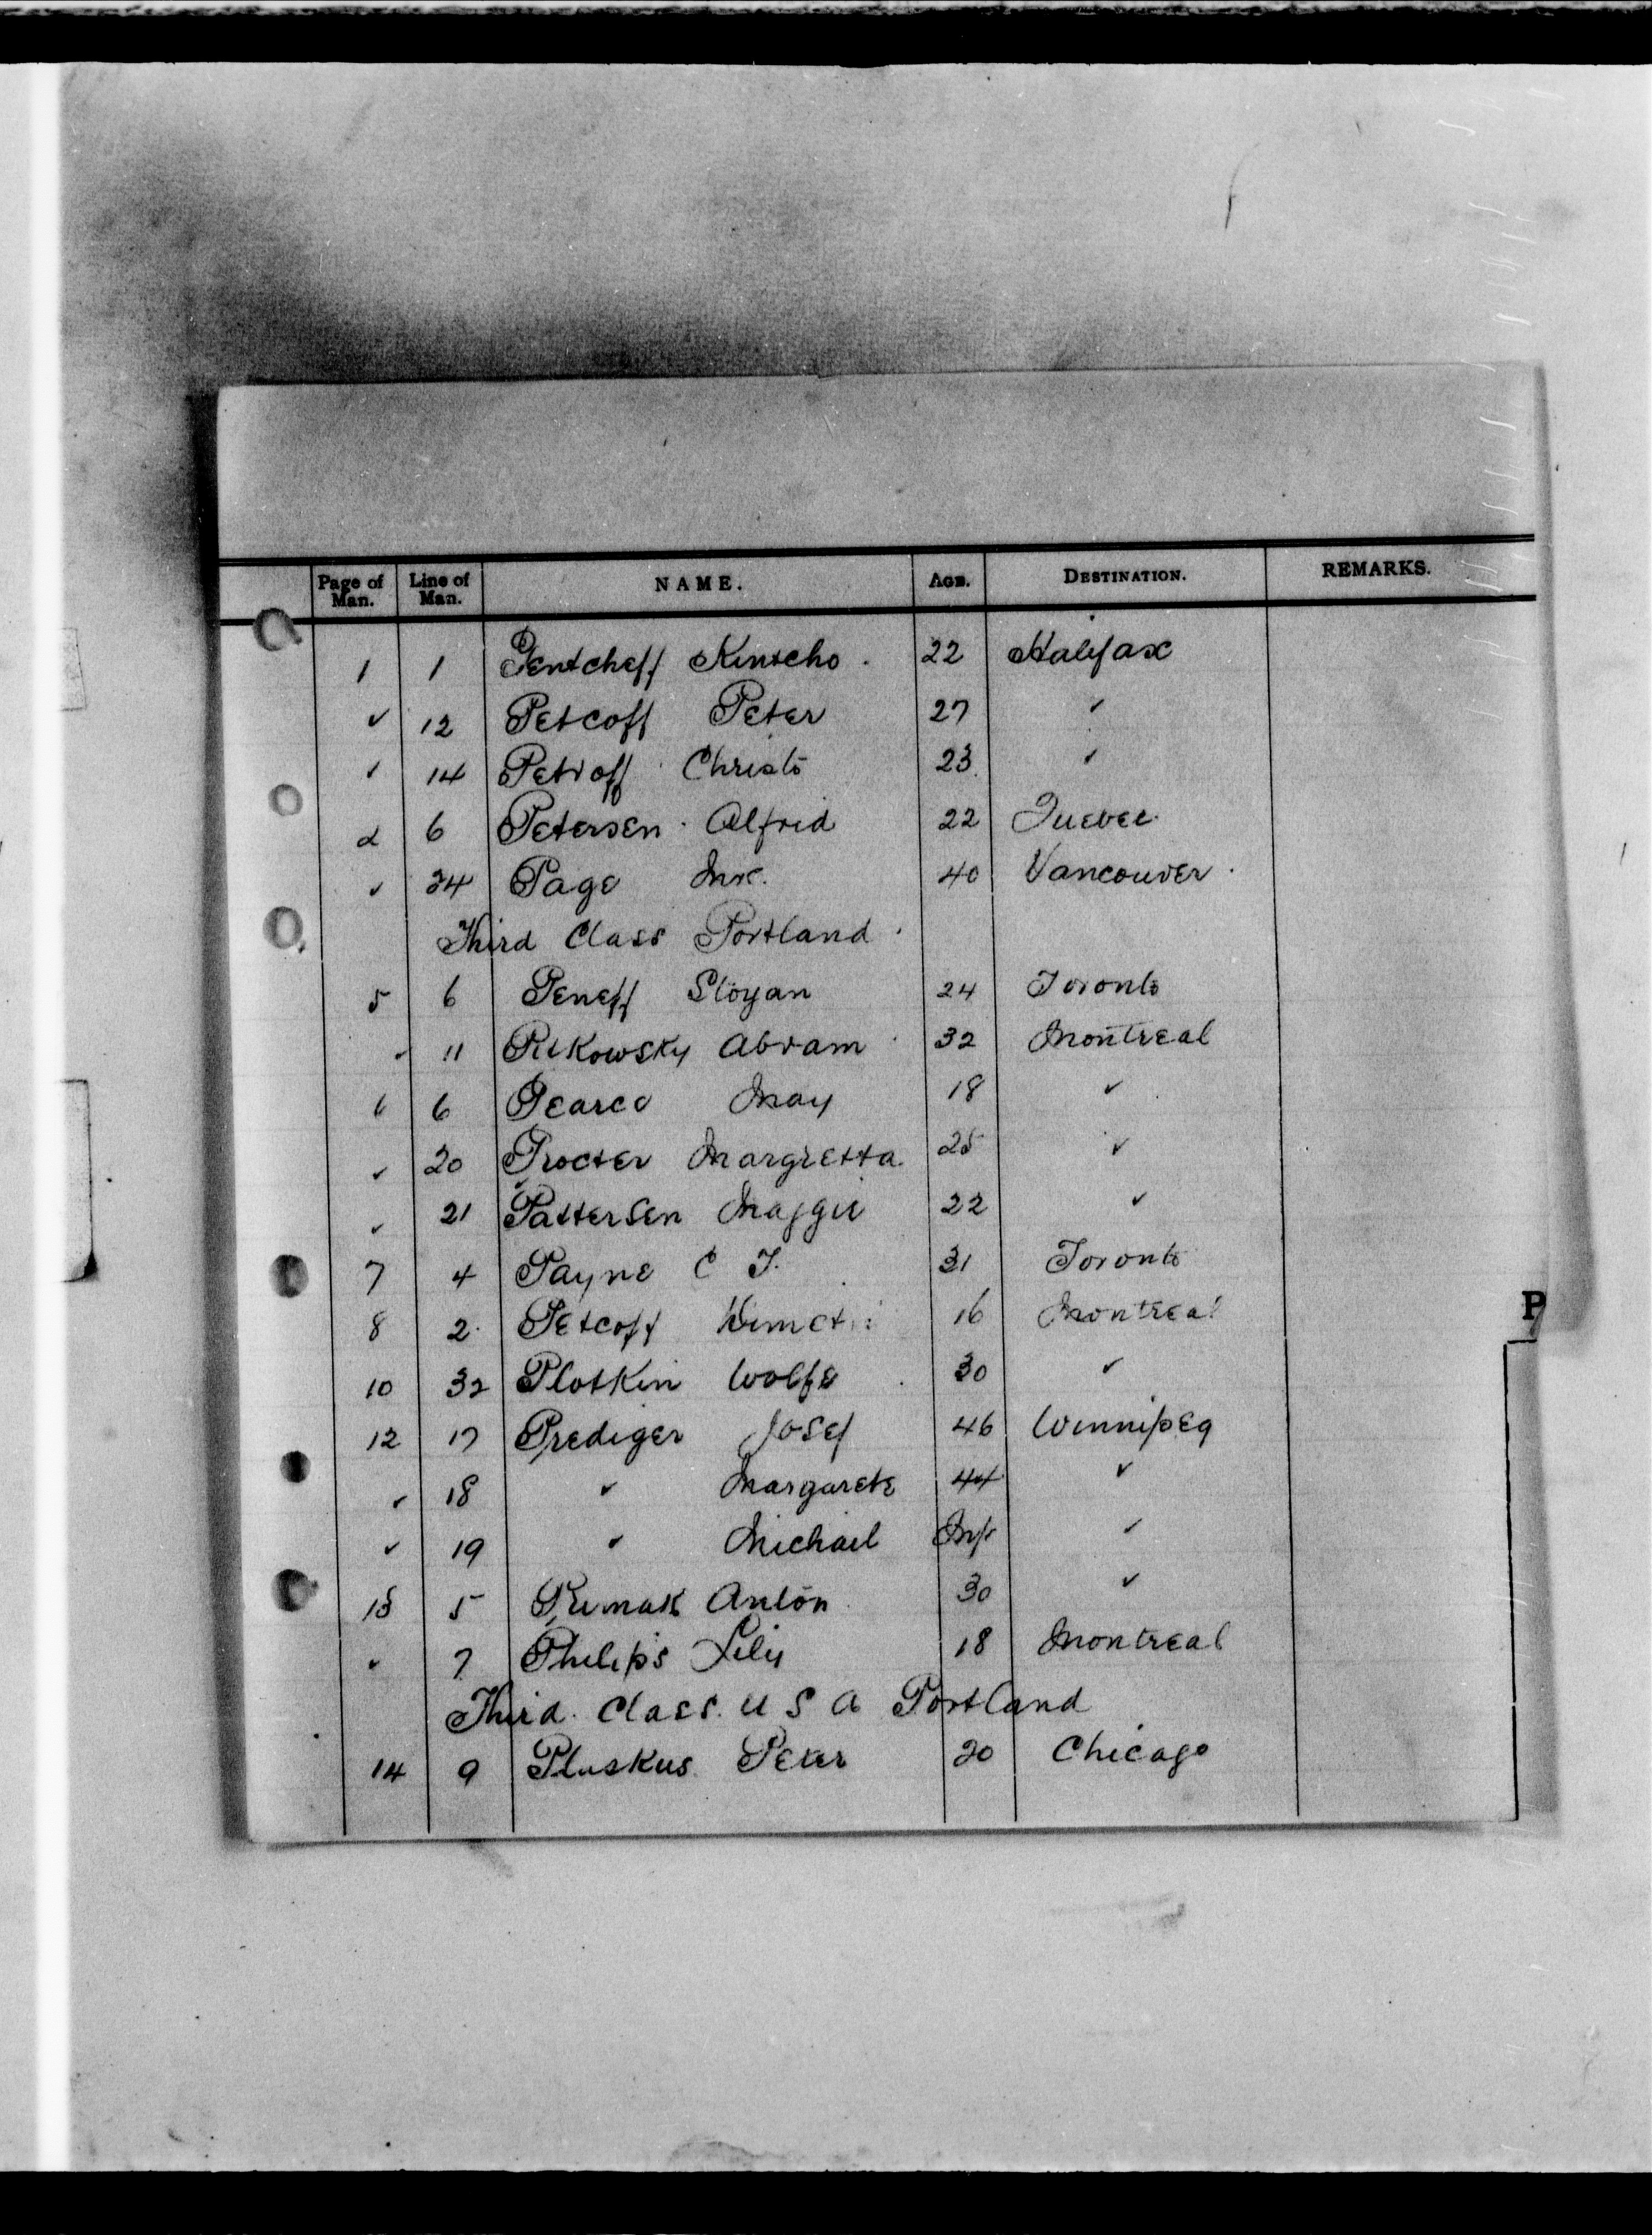 Page of Man. Line of Man. NAME. AGE. DESTINATION. REMARKS.
1 1 Pentcheff Kintcho. 22 Halifax
✓ 12 Petcoff Peter 27 ✓
✓ 14 Petroff Christo 23 ✓
2 6 Petersen Alfrid 22 Quebec.
✓ 34 Page 40 Vancouver.
Third Class Portland.
5 6 Peneff Stoyan 24 Toronto
✓ 11 Pitkowsky Abram 32 Montreal
6 6 Pearce May 18 ✓
✓ 20 Procter Margretta 25 ✓
✓ 21 Pattersen Maggie 22 ✓
7 4 Payne C T. 31 Toronto
8 2 Petcoff Dimetri 16 Montreal
10 32 Plotkin Wolfe 30 ✓
12 17 Prediger Josef 46 Winnipeg
✓ 18 ✓ Margarete 44 ✓
✓ 19 ✓ Michael Inf ✓
13 5 Anton 30 ✓
✓ 7 Philips Lily 18 Montreal
Third Class. U S A Portland
14 9 Pluskus Peter 20 Chicago
P